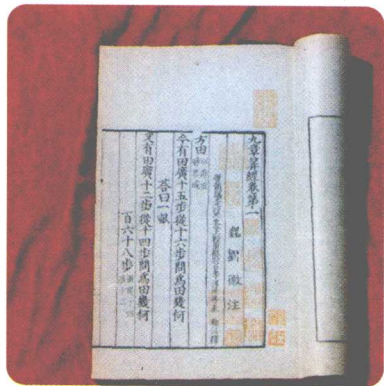 九章筭經卷第一
魏劉徽注
方田
今有田廣十五步從十六步問爲田幾何
荅曰一畝
又有田廣十二步從十四步問爲田幾何
百六十八步